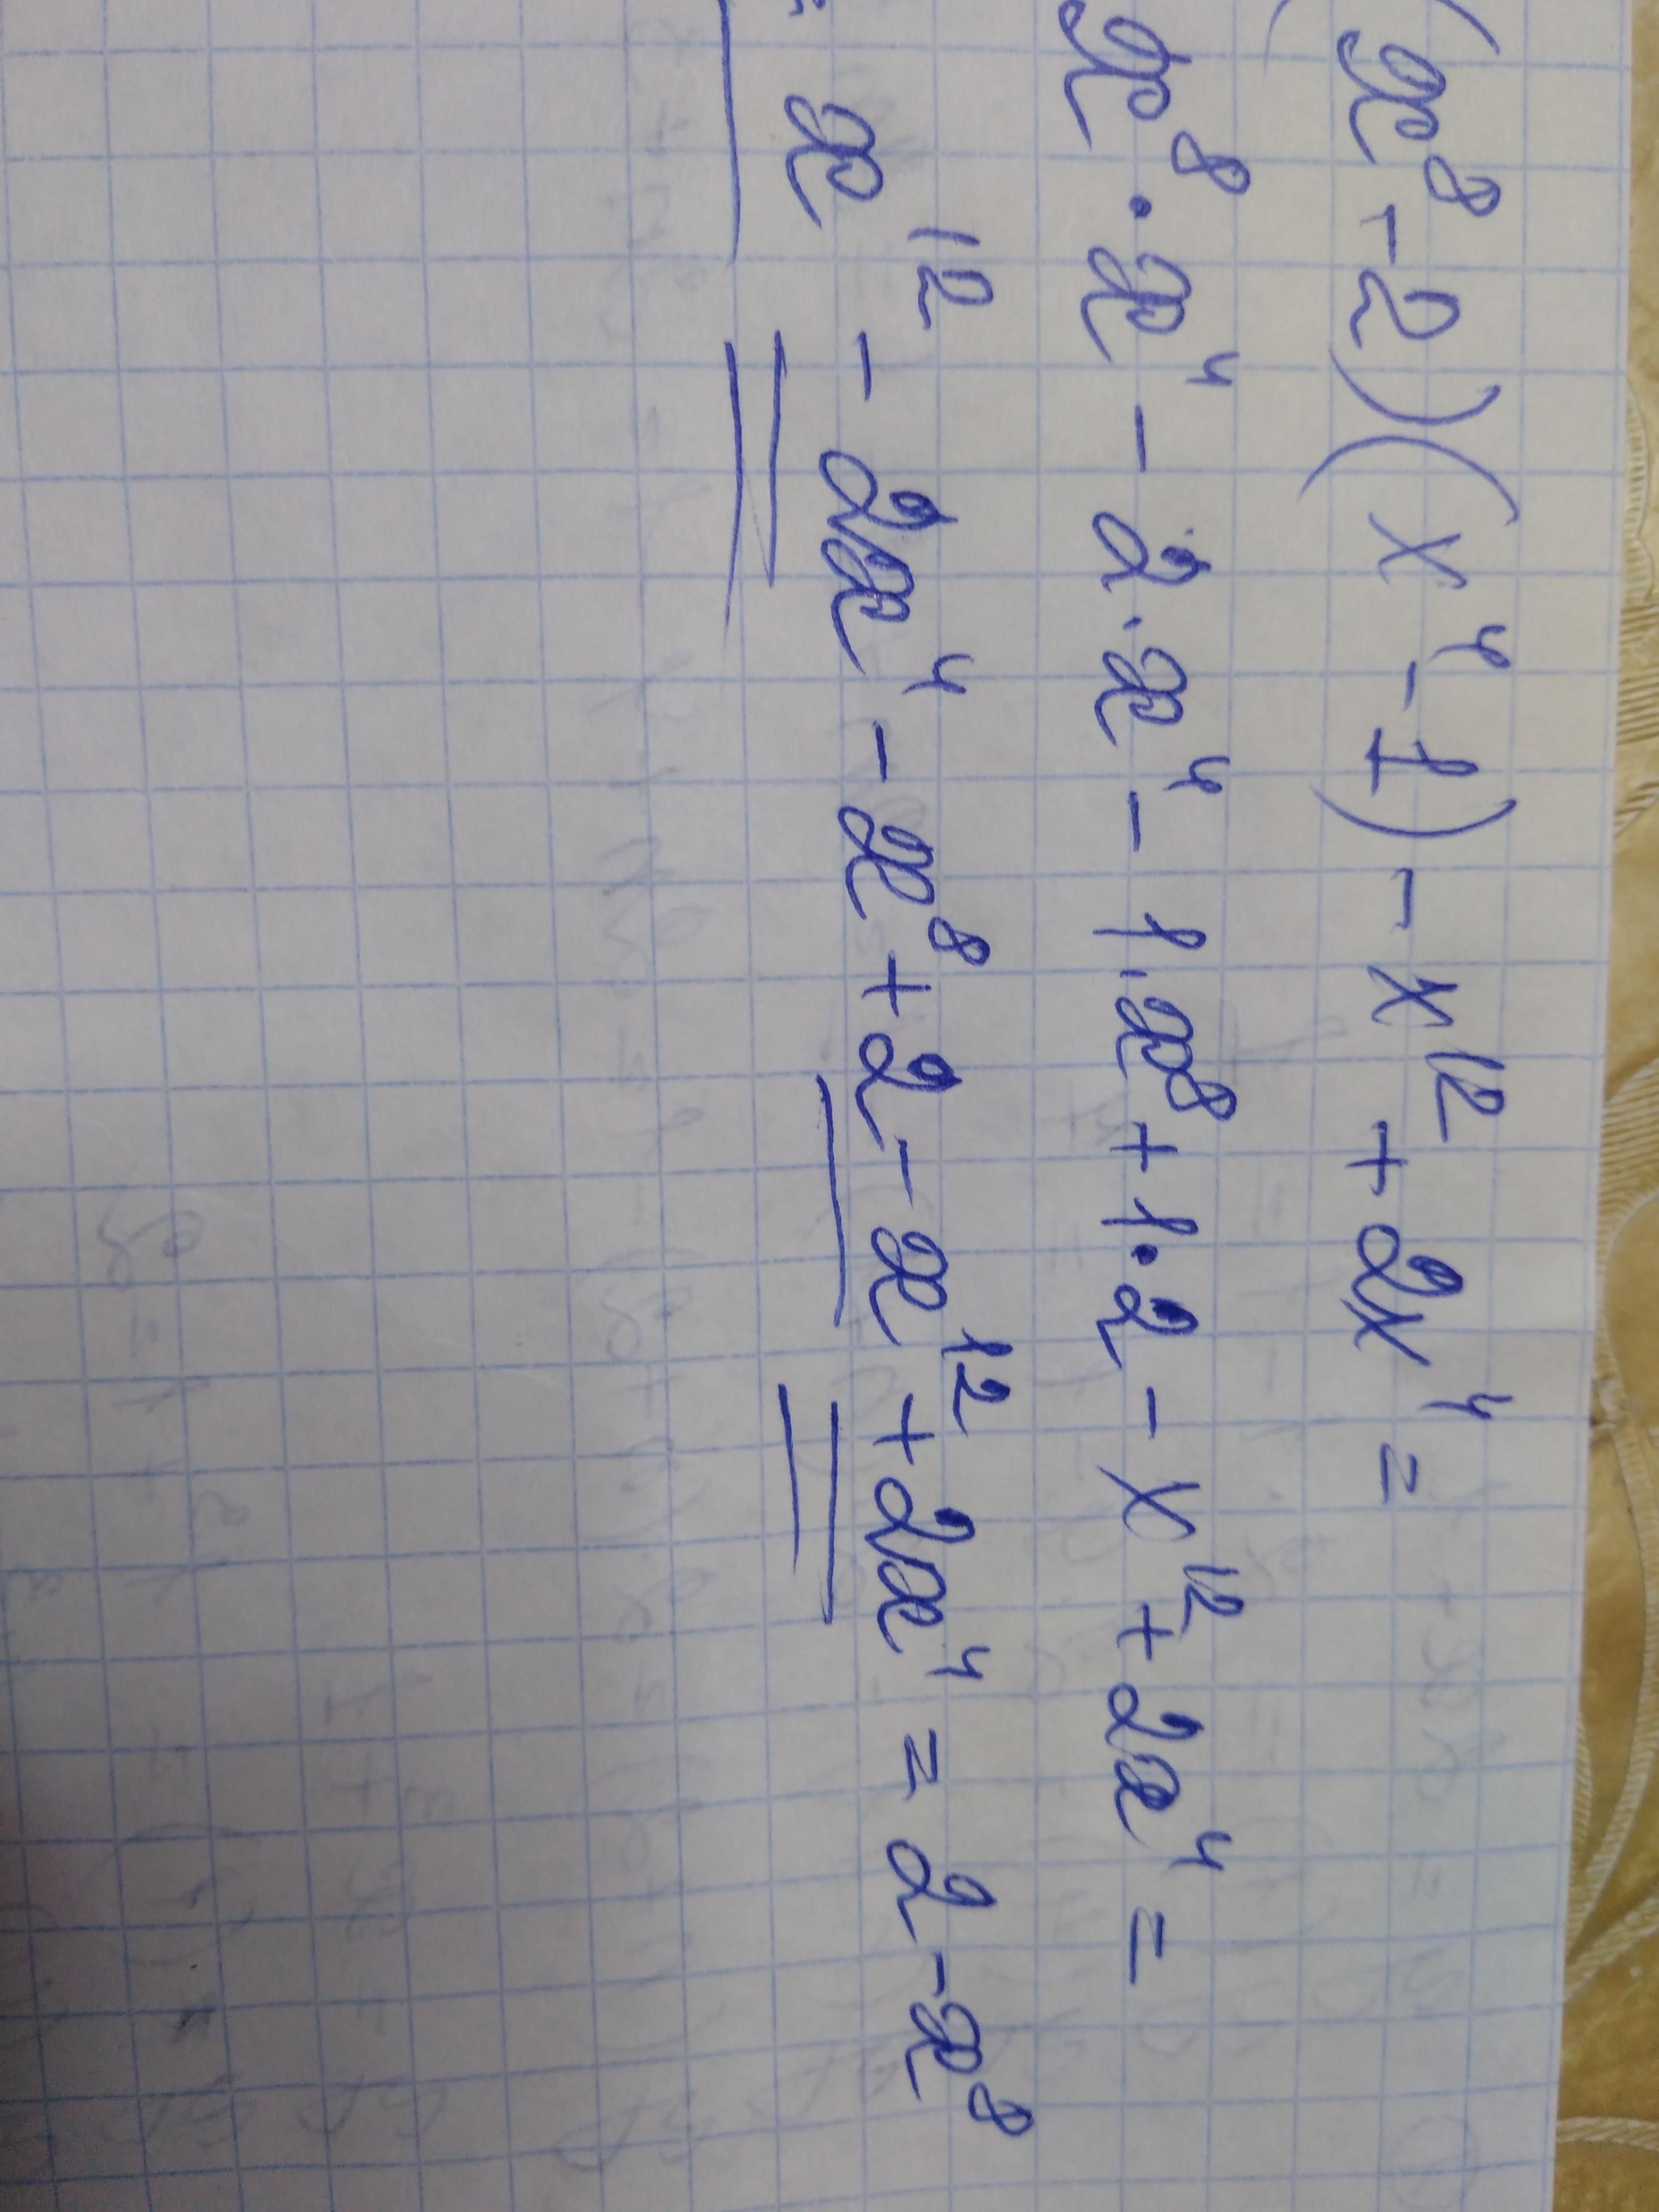 (x⁸-2)(x⁴-1)-x¹²+2x⁴=
x⁸·x⁴-2·x⁴-1·x⁸+1·2-x¹²+2x⁴=
= x¹²-2x⁴-x⁸+2-x¹²+2x⁴=2-x⁸